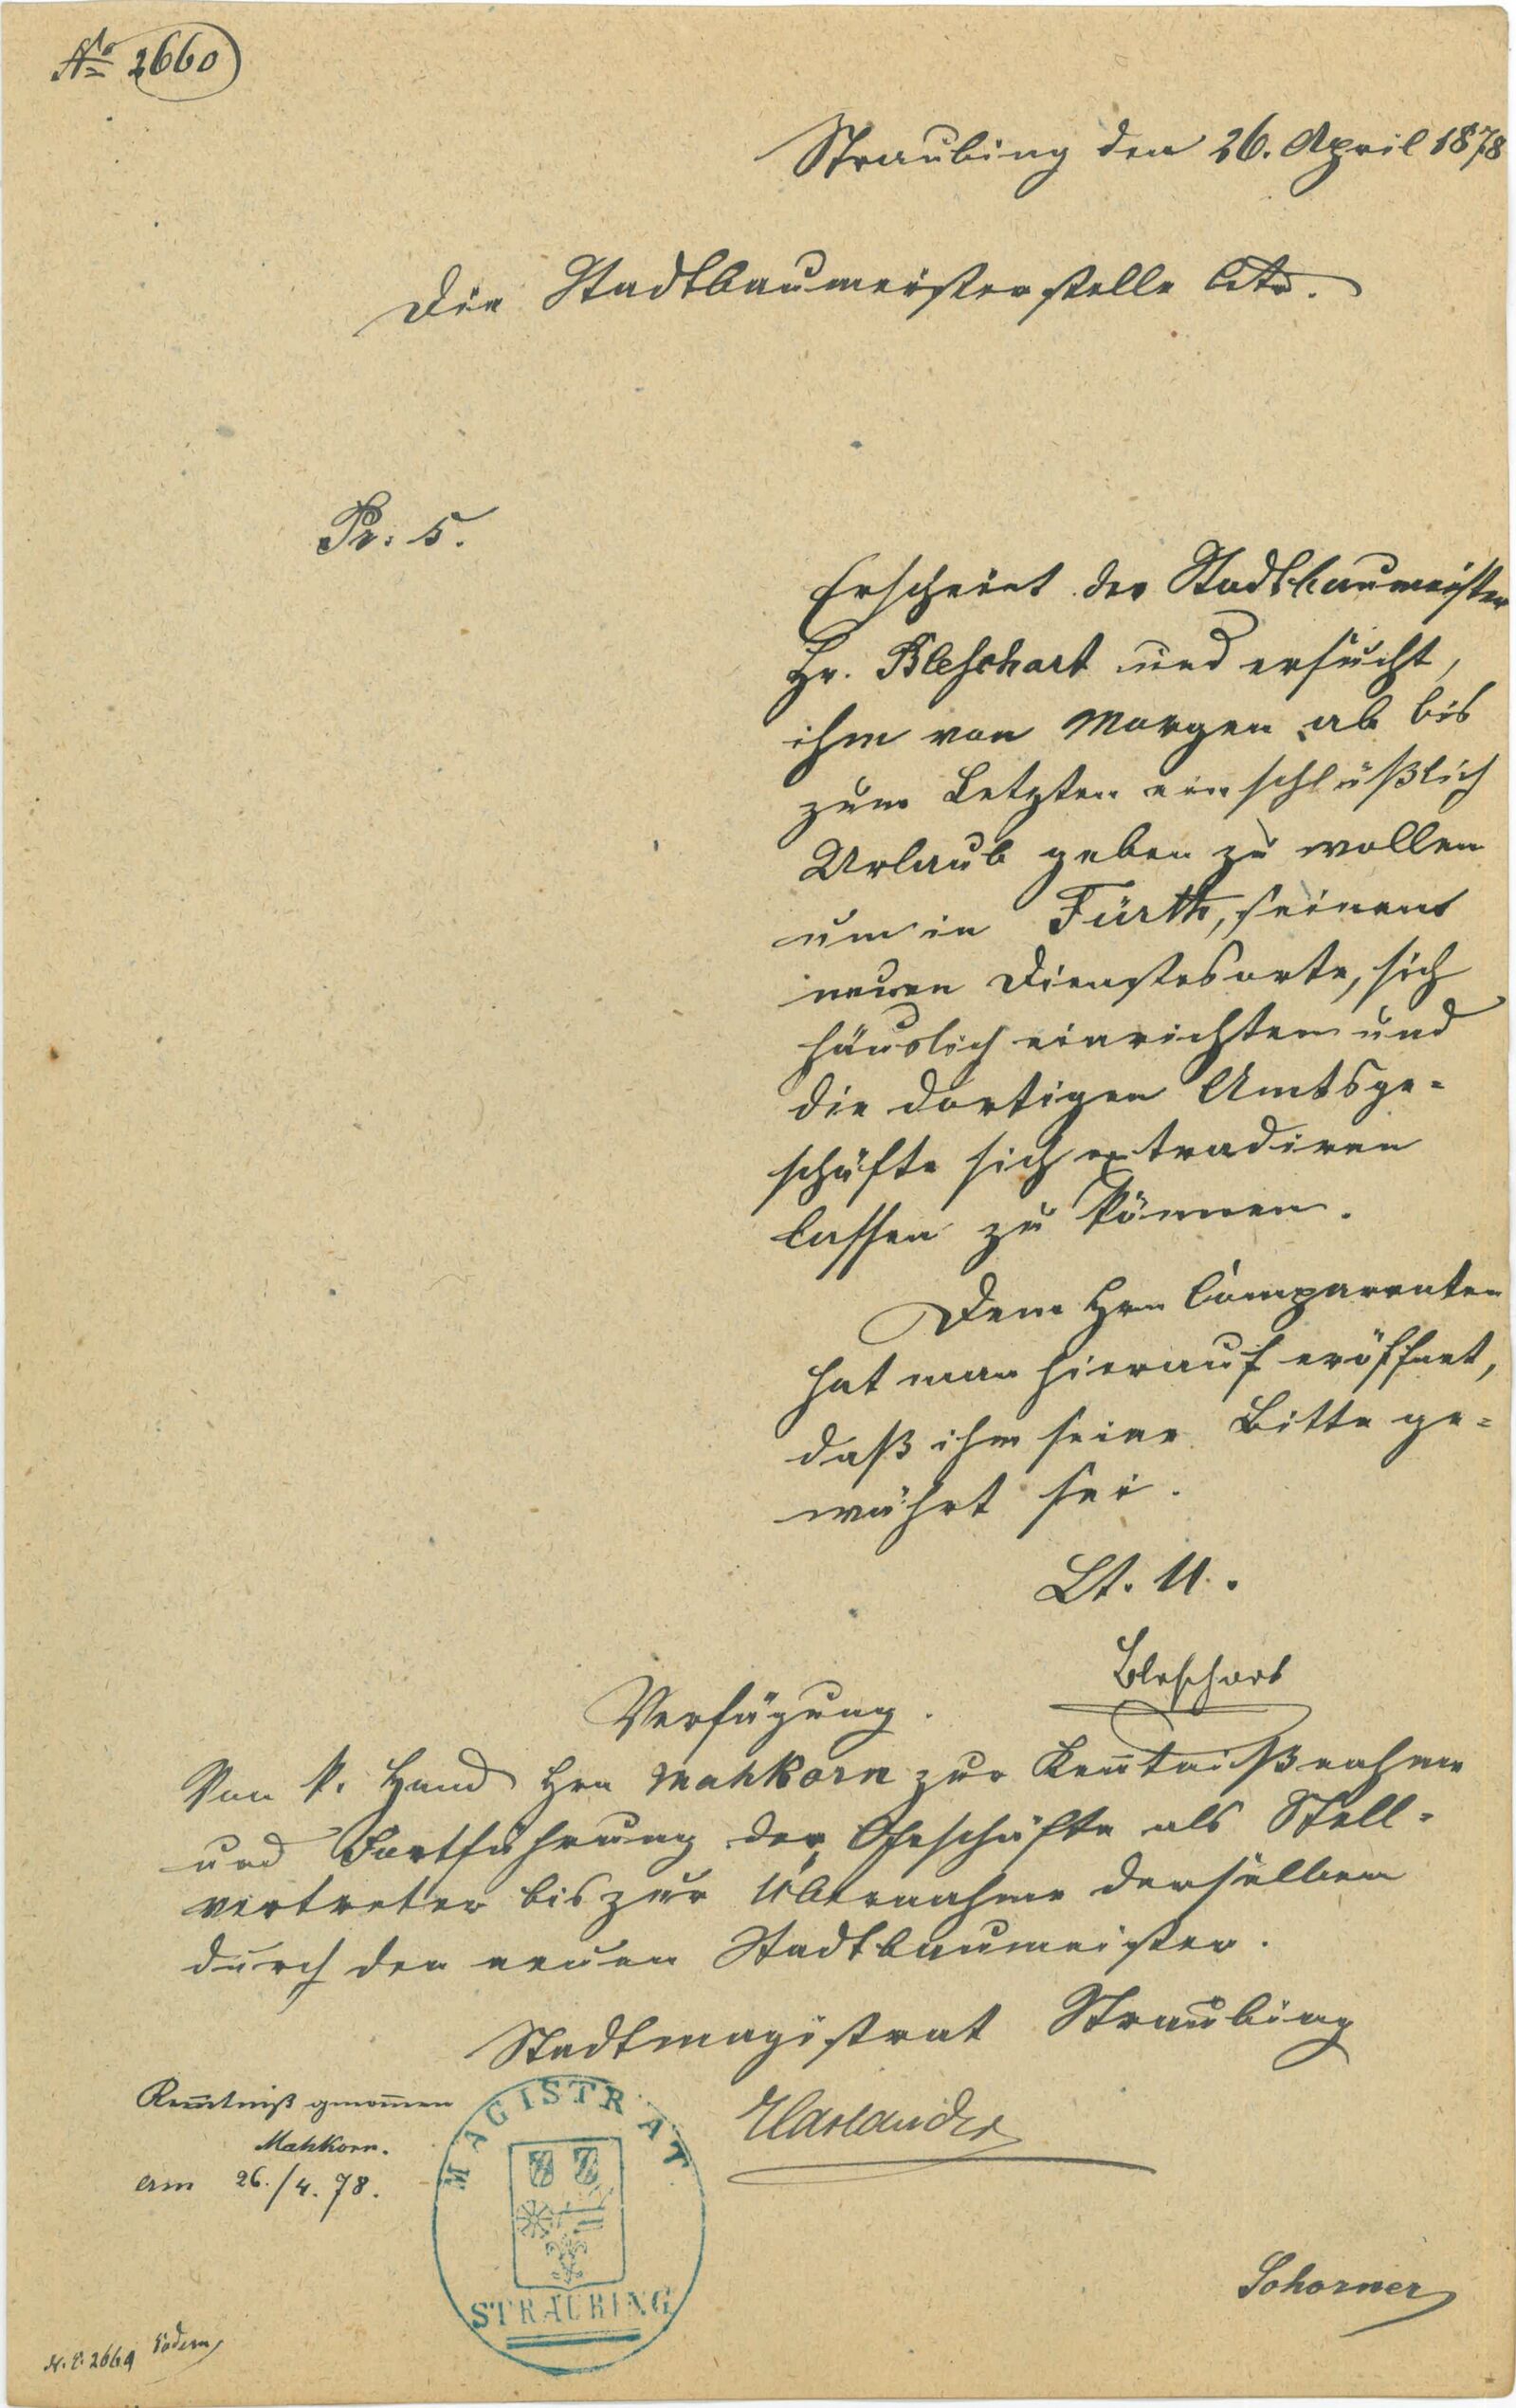 No 2660
Straubing den 26. April 1878
Die Stadtbaumeisterstelle btr.
Pr: 5.
Erscheint der Stadtbaumeister
Hr. Bleschart und ersucht,
ihm von Morgen ab bis
zum Letzten einschlüßlich
Urlaub geben zu wollen
um in Fürth, seinem
neuen Dienstesorte, sich
häuslich einrichten und
die dortigen Amtsge-
schäfte sich extradiren
lassen zu können.
Dem Hrn Comparenten
hat man hierauf eröffnet,
daß ihm seine Bitte ge-
währt sei.
Lt. U.
Bleschart
Verfügung.
Von k. Hand Hrn Mahkorn zur Kenntnißnahme
und Fortführung der Geschäfte als Stell-
vertreter bis zur Übernahme derselben
durch den neuen Stadtbaumeister.
Stadtmagistrat Straubing
Kenntniß genommen
Mahkorn.
am 26./4. 78.
MAGISTRAT
STRAUBING
Harlander
Schorner
2669